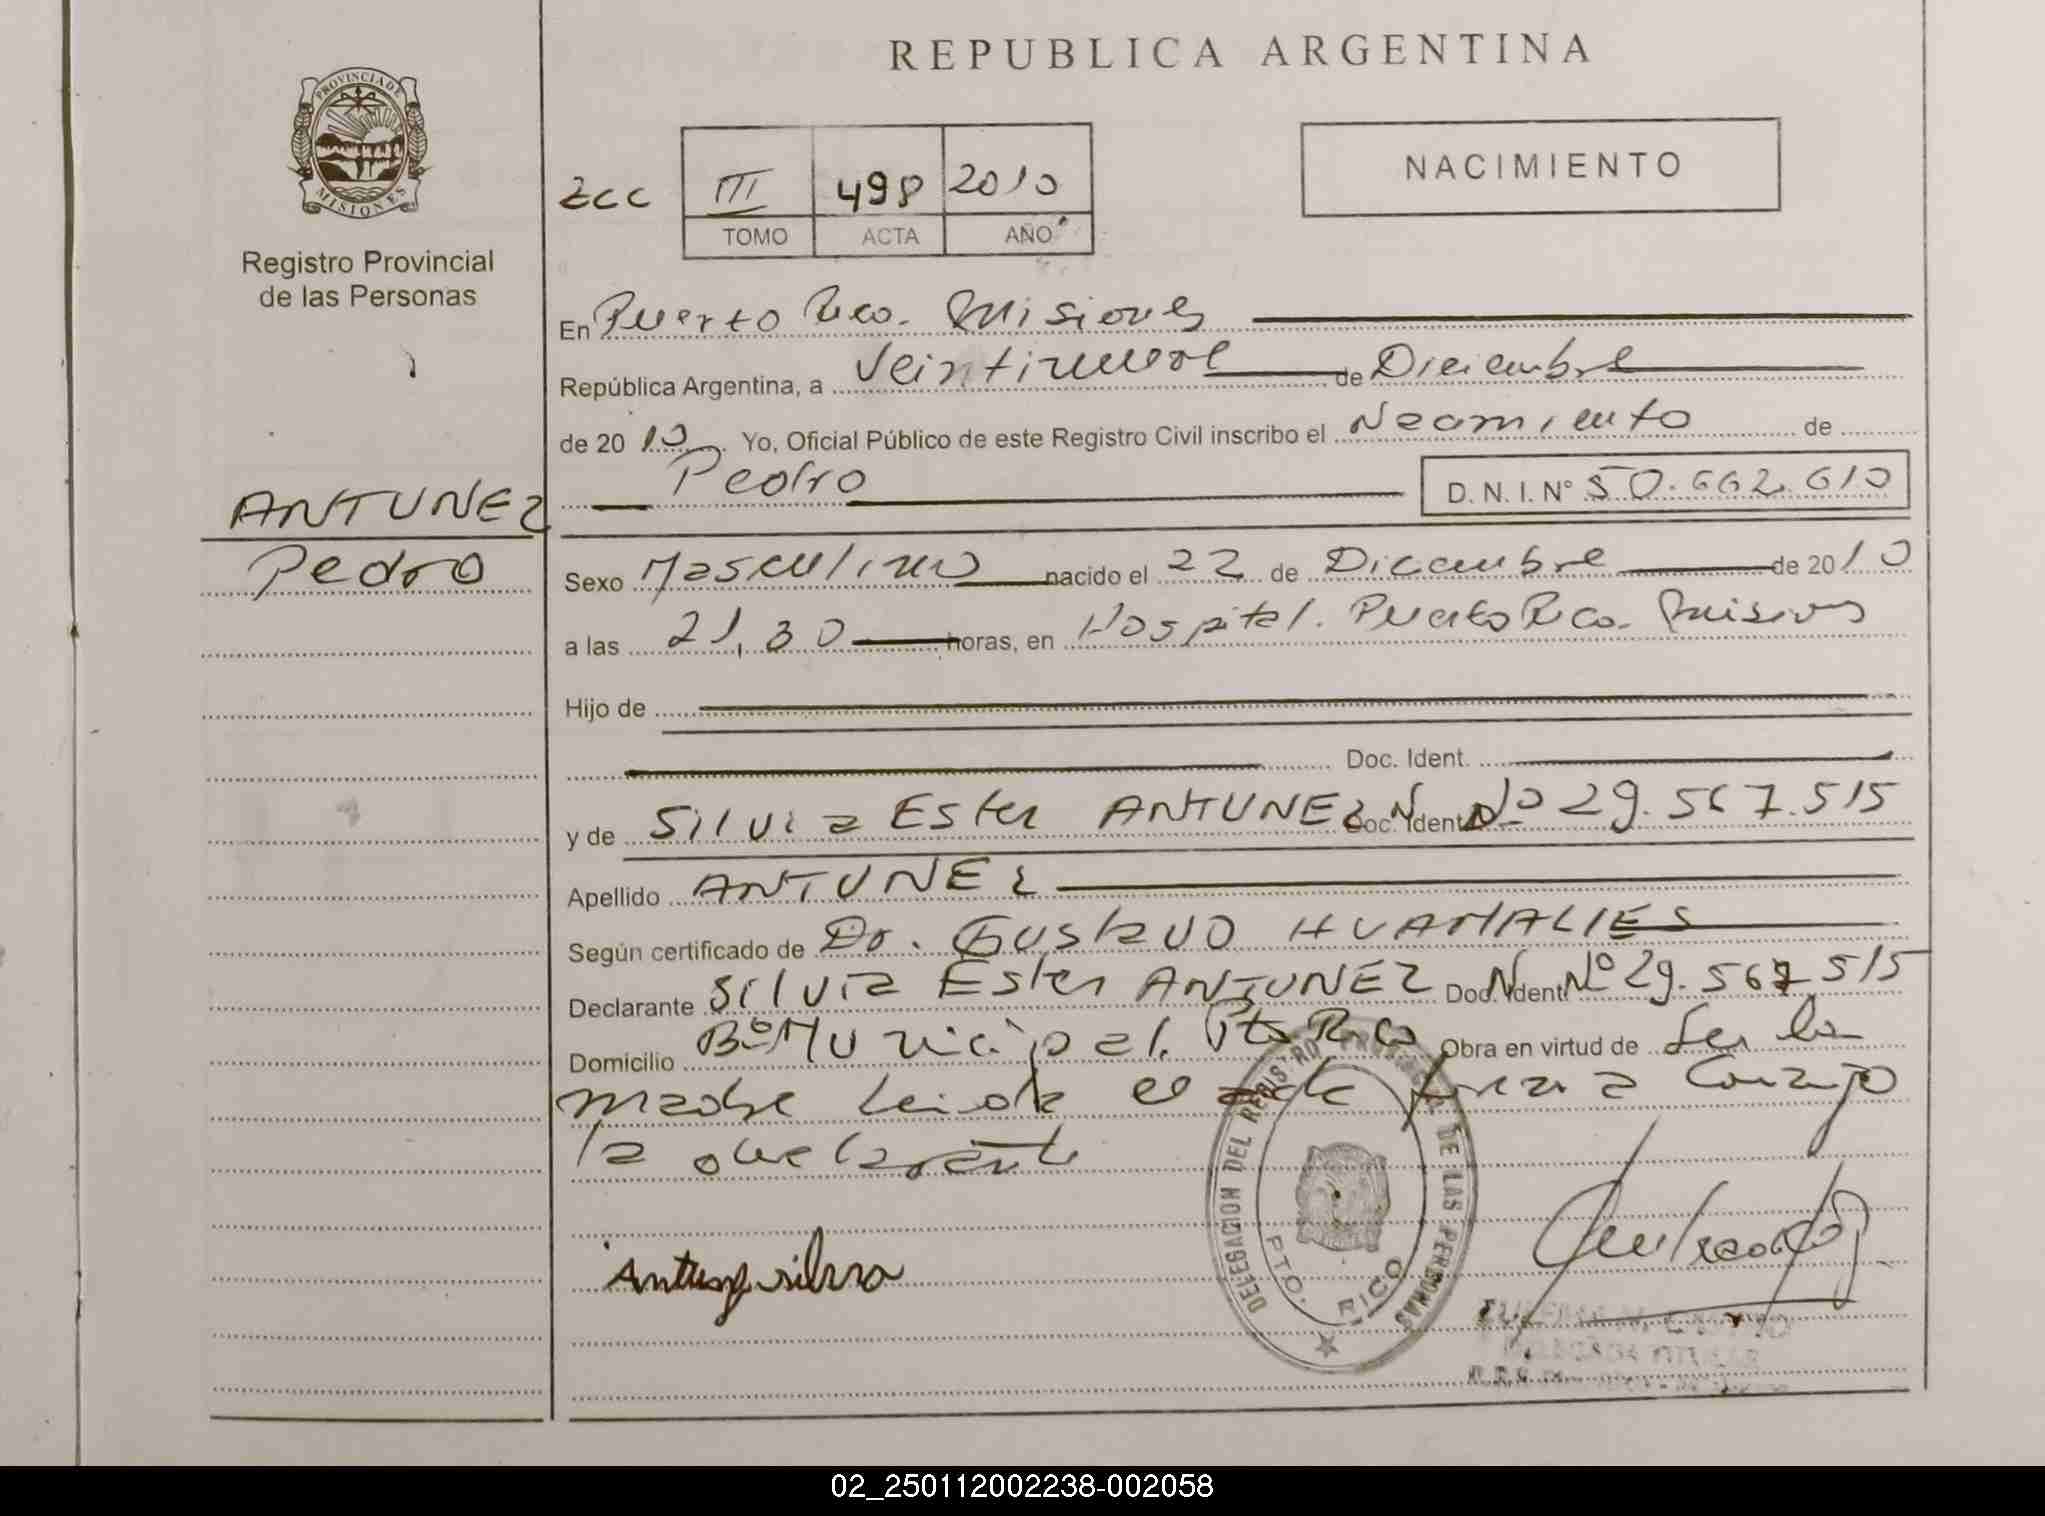 REPUBLICA ARGENTINA
PROVINCIA DE
MISIONES
Registro Provincial
de las Personas
III 498 2010
TOMO ACTA AÑO
NACIMIENTO
En Puerto Rico. Misiones
República Argentina, a Veintinueve de Diciembre
de 2010 Yo, Oficial Público de este Registro Civil inscribo el Nacimiento de
Pedro D. N. I. N° 50.662.610
ANTUNEZ
Pedro
Sexo Masculino nacido el 22 de Diciembre de 2010
a las 21,30 horas, en Hospital. Puerto Rico. Misiones
Hijo de
Doc. Ident.
y de Silvia Ester ANTUNEZ Doc. Ident. Nº 29.567.515
Apellido ANTUNEZ
Según certificado de Dr. Gustavo HUAMALIES
Declarante Silvia Ester ANTUNEZ Doc. Ident. Nº 29.567.515
Domicilio Bº Municipal. Pto Rico Obra en virtud de Ser la
madre Leida el acta firma conmigo
la declarante
Antunez silvia
DELEGACION DEL REGISTRO PROVINCIAL DE LAS PERSONAS
PTO. RICO
02_250112002238-002058